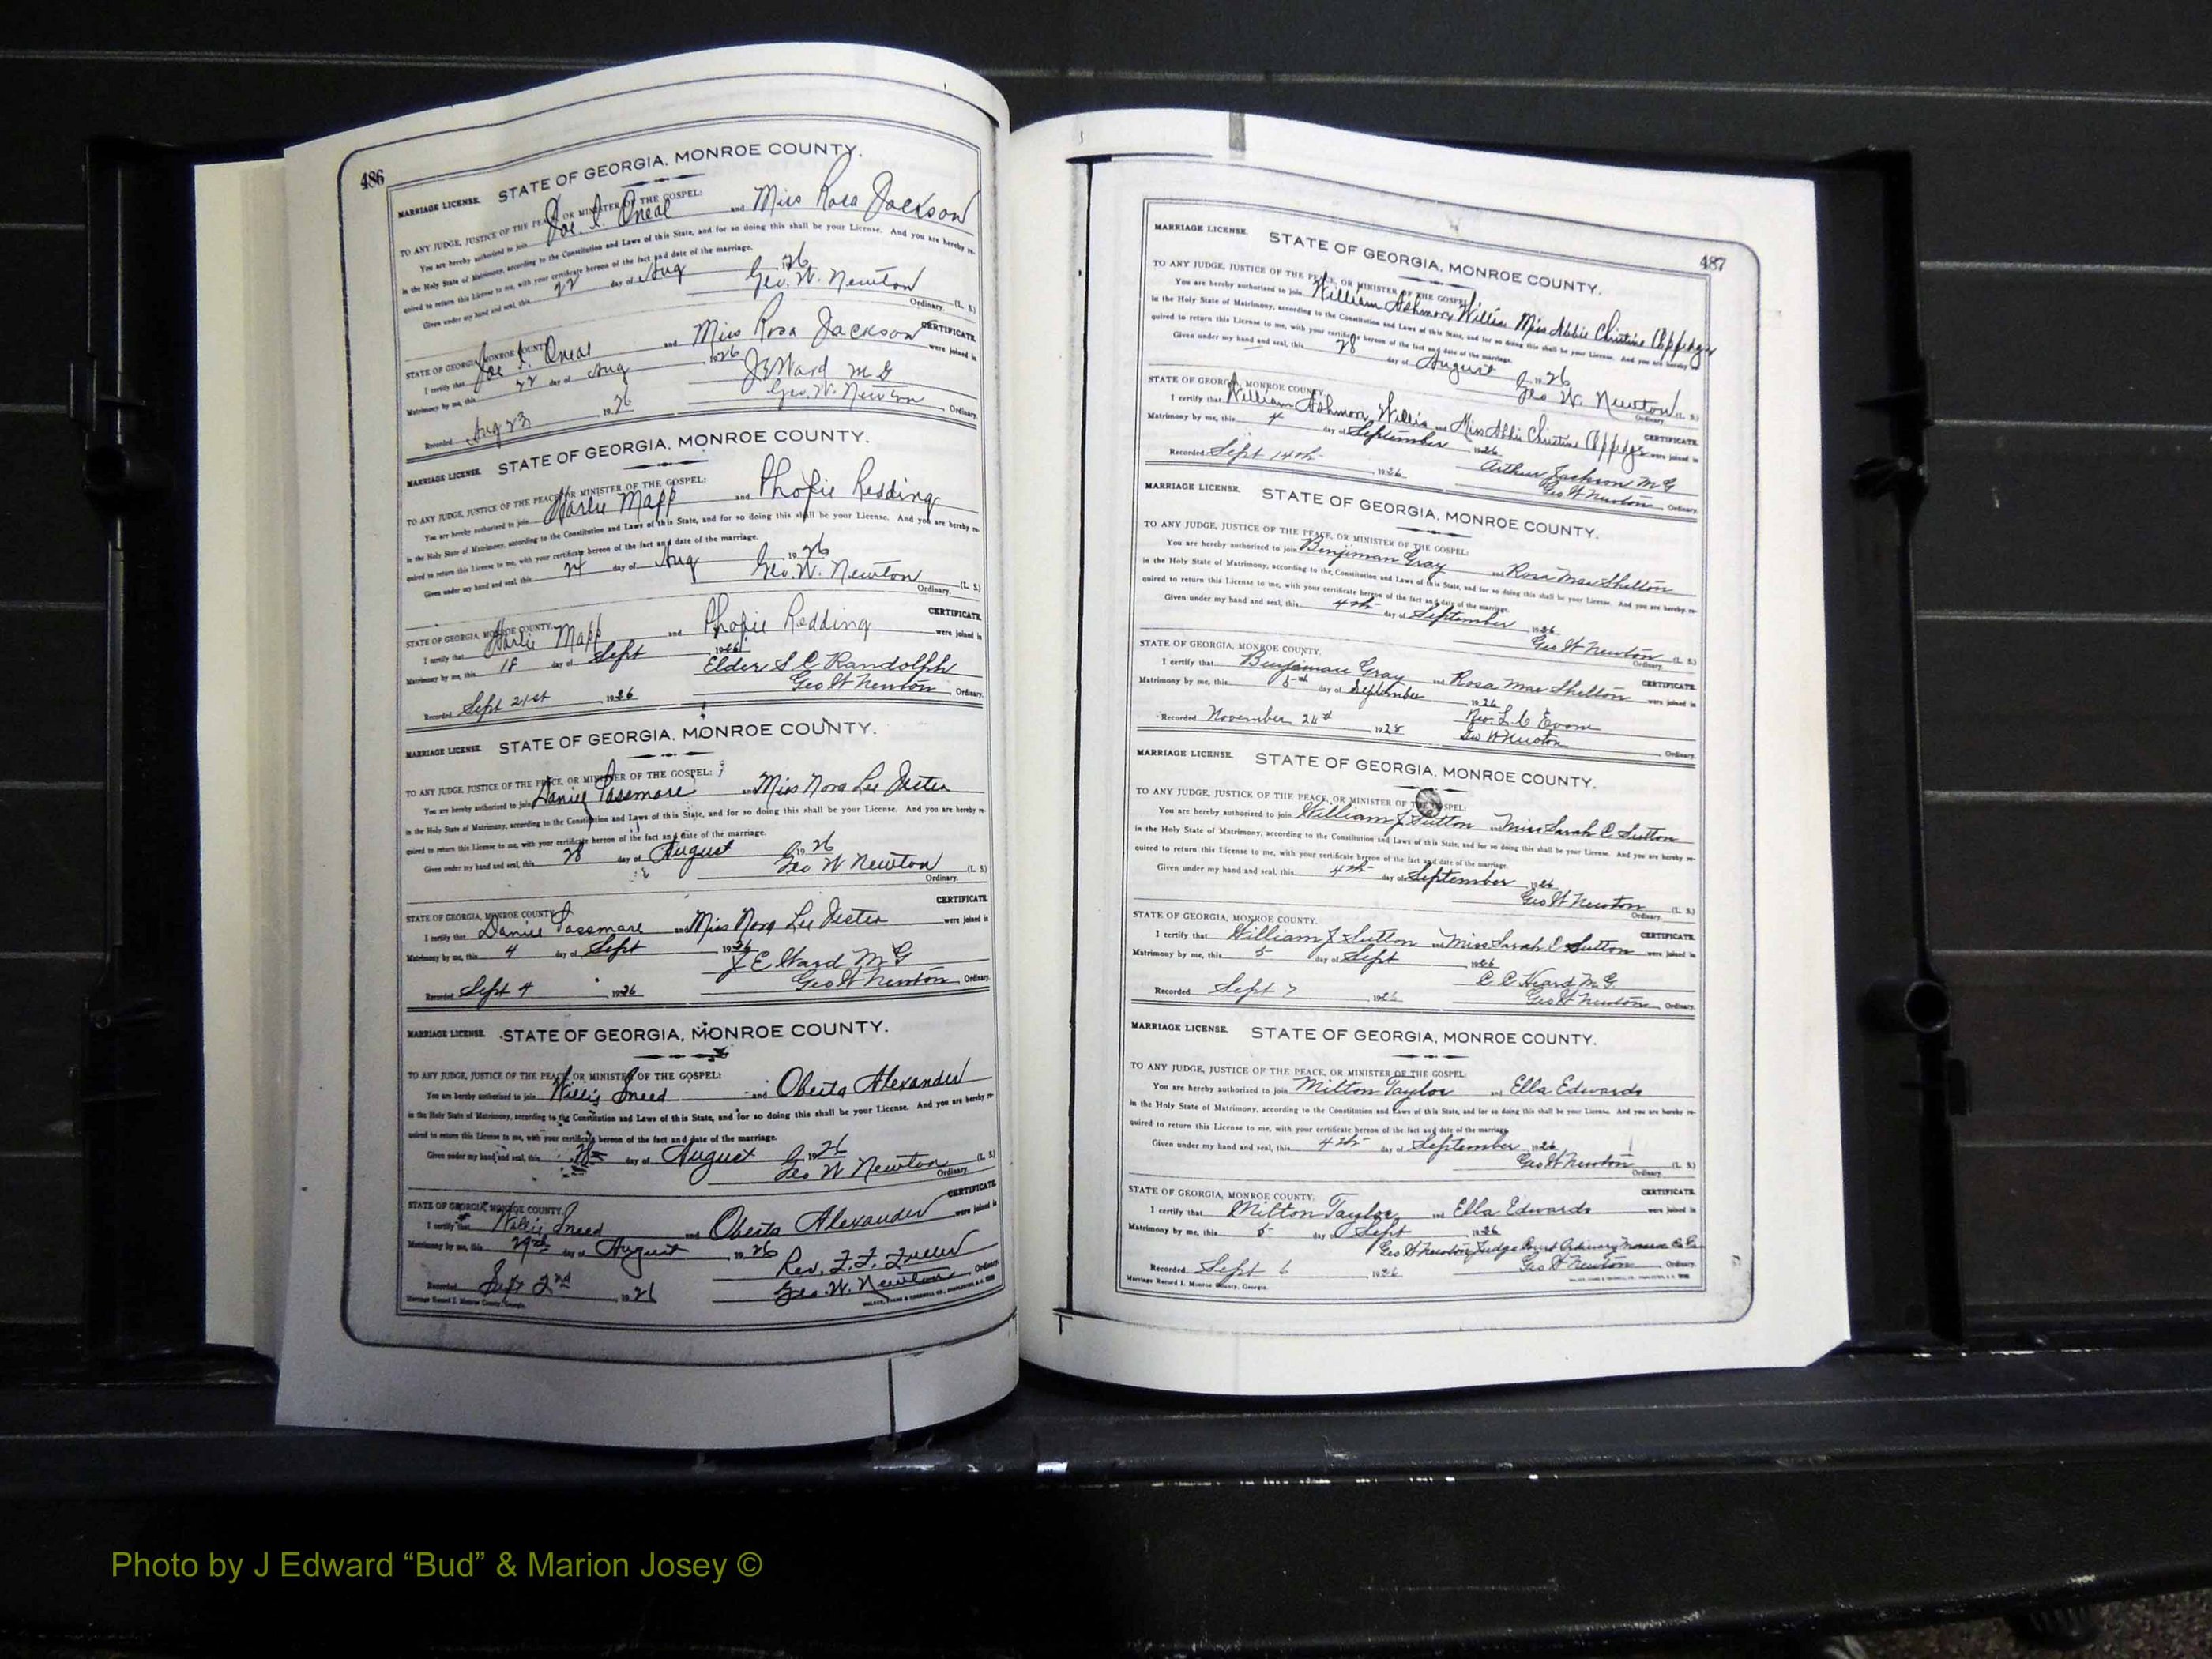 486
MARRIAGE LICENSE. STATE OF GEORGIA, MONROE COUNTY.
TO ANY JUDGE, JUSTICE OF THE PEACE, OR MINISTER OF THE GOSPEL:
You are hereby authorized to join Joe. I. Oneal and Miss Rosa Jackson
in the Holy State of Matrimony, according to the Constitution and Laws of this State, and for so doing this shall be your License. And you are hereby re-
quired to return this License to me, with your certificate hereon of the fact and date of the marriage.
Given under my hand and seal, this 22 day of Aug 1926
Geo. W. Newton (L. S.)
Ordinary.
CERTIFICATE.
STATE OF GEORGIA, MONROE COUNTY.
I certify that Joe I. Oneal and Miss Rosa Jackson were joined in
Matrimony by me, this 22 day of Aug 1926
J E Ward M G
Recorded Aug 23 1926 Geo. W. Newton Ordinary.
MARRIAGE LICENSE. STATE OF GEORGIA, MONROE COUNTY.
TO ANY JUDGE, JUSTICE OF THE PEACE, OR MINISTER OF THE GOSPEL:
You are hereby authorized to join Harlie Mapp and Phofie Redding
in the Holy State of Matrimony, according to the Constitution and Laws of this State, and for so doing this shall be your License. And you are hereby re-
quired to return this License to me, with your certificate hereon of the fact and date of the marriage.
Given under my hand and seal, this day of Aug 1926
Geo. W. Newton (L. S.)
Ordinary.
CERTIFICATE.
STATE OF GEORGIA, MONROE COUNTY.
I certify that Harlie Mapp and Phofie Redding were joined in
Matrimony by me, this 18 day of Sept 1926
Elder S C Randolph
Recorded Sept 21st 1926 Geo W Newton Ordinary.
MARRIAGE LICENSE. STATE OF GEORGIA, MONROE COUNTY.
TO ANY JUDGE, JUSTICE OF THE PEACE, OR MINISTER OF THE GOSPEL:
You are hereby authorized to join Daniel Passmore and Miss Nora Lee
in the Holy State of Matrimony, according to the Constitution and Laws of this State, and for so doing this shall be your License. And you are hereby re-
quired to return this License to me, with your certificate hereon of the fact and date of the marriage.
Given under my hand and seal, this 28 day of August 1926
Geo W Newton (L. S.)
Ordinary.
CERTIFICATE.
STATE OF GEORGIA, MONROE COUNTY.
I certify that Daniel Passmore and Miss Nora Lee were joined in
Matrimony by me, this 4 day of Sept 1926
J E Ward M G
Recorded Sept 4 1926 Geo W Newton Ordinary.
MARRIAGE LICENSE. STATE OF GEORGIA, MONROE COUNTY.
TO ANY JUDGE, JUSTICE OF THE PEACE, OR MINISTER OF THE GOSPEL:
You are hereby authorized to join Willis Sneed and Oberta Alexander
in the Holy State of Matrimony, according to the Constitution and Laws of this State, and for so doing this shall be your License. And you are hereby re-
quired to return this License to me, with your certificate hereon of the fact and date of the marriage.
Given under my hand and seal, this 28 day of August 1926
Geo W Newton (L. S.)
Ordinary.
CERTIFICATE.
STATE OF GEORGIA, MONROE COUNTY.
I certify that Willis Sneed and Oberta Alexander were joined in
Matrimony by me, this 29th day of August 1926
Rev. F. F. Fuller
Recorded Sept 2nd 1926 Geo. W. Newton Ordinary.
Marriage Record I. Monroe County, Georgia.
487
MARRIAGE LICENSE. STATE OF GEORGIA, MONROE COUNTY.
TO ANY JUDGE, JUSTICE OF THE PEACE, OR MINISTER OF THE GOSPEL:
You are hereby authorized to join William Ashmore Willis Miss Abbie Christine
in the Holy State of Matrimony, according to the Constitution and Laws of this State, and for so doing this shall be your License. And you are hereby re-
quired to return this License to me, with your certificate hereon of the fact and date of the marriage.
Given under my hand and seal, this 28 day of August 1926
Geo W. Newton (L. S.)
Ordinary.
CERTIFICATE.
STATE OF GEORGIA, MONROE COUNTY.
I certify that William Ashmore Willis and Miss Abbie Christine were joined in
Matrimony by me, this 4 day of September 1926
Arthur Jackson M G
Recorded Sept 14th 1926 Geo W Newton Ordinary.
MARRIAGE LICENSE. STATE OF GEORGIA, MONROE COUNTY.
TO ANY JUDGE, JUSTICE OF THE PEACE, OR MINISTER OF THE GOSPEL:
You are hereby authorized to join Benjiman Gray and Rosa Mae Shelton
in the Holy State of Matrimony, according to the Constitution and Laws of this State, and for so doing this shall be your License. And you are hereby re-
quired to return this License to me, with your certificate hereon of the fact and date of the marriage.
Given under my hand and seal, this 4th day of September 1926
Geo W Newton (L. S.)
Ordinary.
CERTIFICATE.
STATE OF GEORGIA, MONROE COUNTY.
I certify that Benjiman Gray and Rosa Mae Shelton were joined in
Matrimony by me, this 5th day of September 1926
Rev. L. C
Recorded November 1928 Geo W Newton Ordinary.
MARRIAGE LICENSE. STATE OF GEORGIA, MONROE COUNTY.
TO ANY JUDGE, JUSTICE OF THE PEACE, OR MINISTER OF THE GOSPEL:
You are hereby authorized to join William J Sutton and Miss Sarah C Sutton
in the Holy State of Matrimony, according to the Constitution and Laws of this State, and for so doing this shall be your License. And you are hereby re-
quired to return this License to me, with your certificate hereon of the fact and date of the marriage.
Given under my hand and seal, this 4th day of September 1926
Geo W Newton (L. S.)
Ordinary.
CERTIFICATE.
STATE OF GEORGIA, MONROE COUNTY.
I certify that William J Sutton and Miss Sarah C Sutton were joined in
Matrimony by me, this 5 day of Sept 1926
C C Heard M. G.
Recorded Sept 7 1926 Geo W Newton Ordinary.
MARRIAGE LICENSE. STATE OF GEORGIA, MONROE COUNTY.
TO ANY JUDGE, JUSTICE OF THE PEACE, OR MINISTER OF THE GOSPEL:
You are hereby authorized to join Milton Taylor and Ella Edwards
in the Holy State of Matrimony, according to the Constitution and Laws of this State, and for so doing this shall be your License. And you are hereby re-
quired to return this License to me, with your certificate hereon of the fact and date of the marriage.
Given under my hand and seal, this 4th day of September 1926
Geo W Newton (L. S.)
Ordinary.
CERTIFICATE.
STATE OF GEORGIA, MONROE COUNTY.
I certify that Milton Taylor and Ella Edwards were joined in
Matrimony by me, this 5 day of Sept 1926
Geo W Newton Judge Court Ordinary Monroe Co Ga
Recorded Sept 6 1926 Geo W Newton Ordinary.
Marriage Record I. Monroe County, Georgia.
Photo by J Edward “Bud” & Marion Josey ©